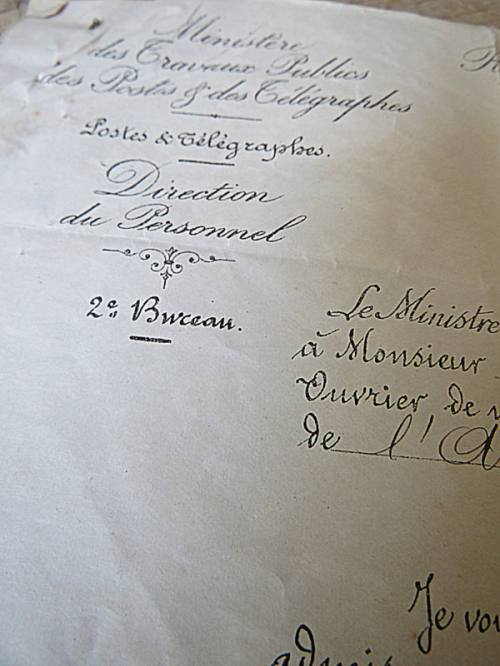 Ministère
des Travaux Publics
des Postes & des Télégraphes
Postes & Télégraphes.
Direction
du Personnel
2e. Bureau.
Le Ministre
à Monsieur
Ouvrier de
de l'
Je
admis